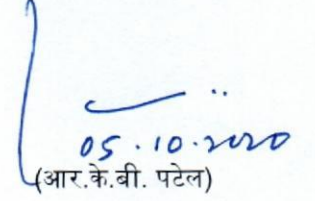 05.10.2020
(आर.के.बी. पटेल)